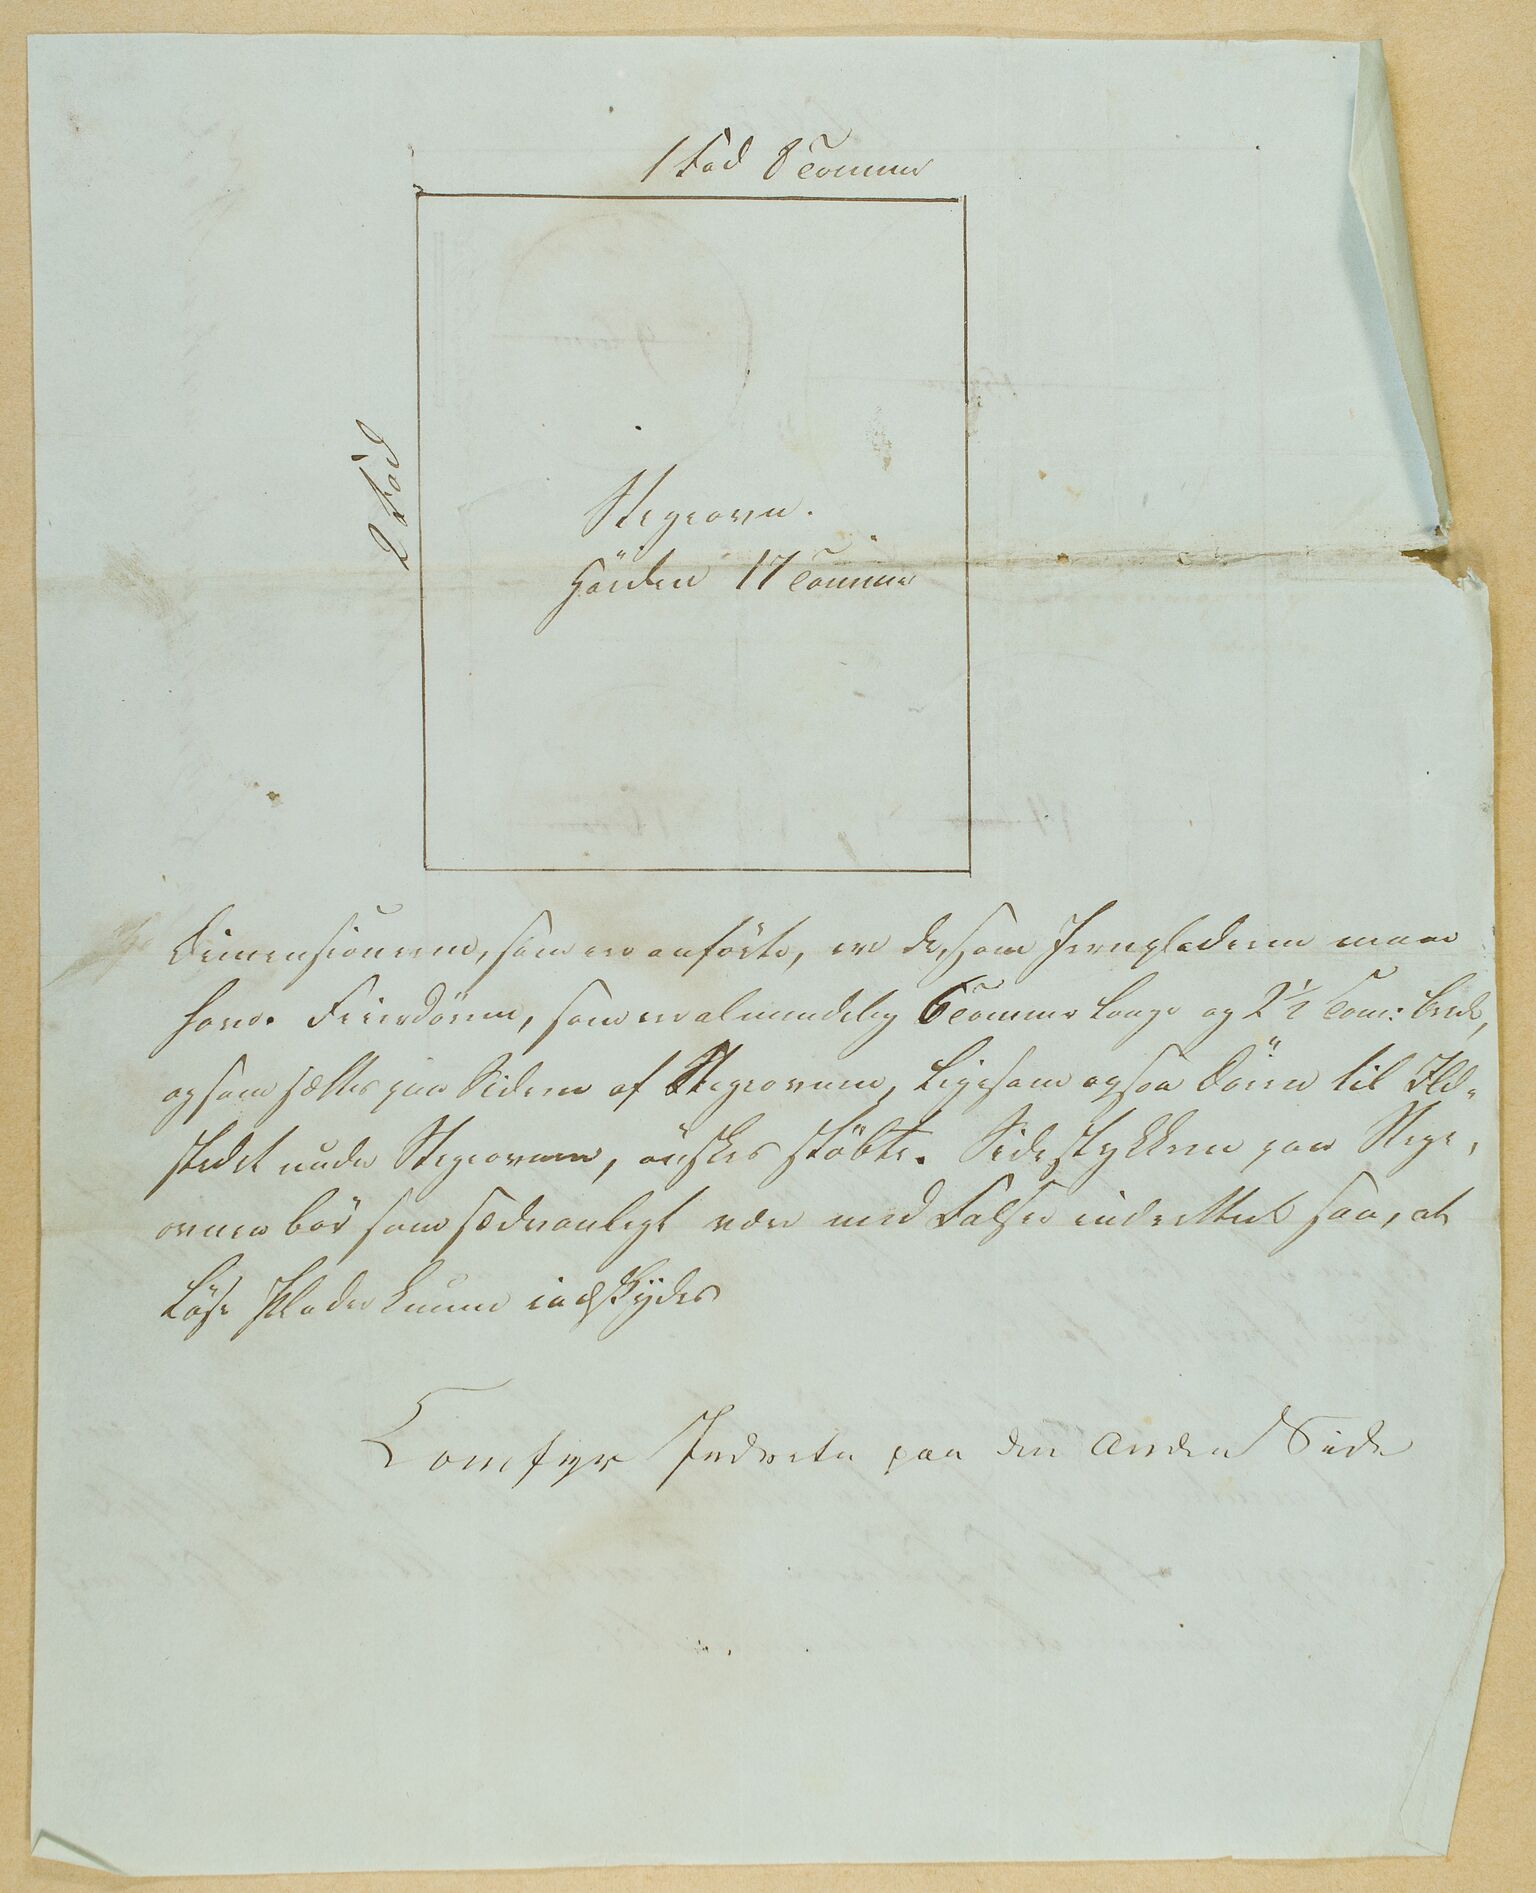 1 Fod 8 Tommer
2 Fod
Stegeovn.
Höiden 17 Tommer
Dimensionerne, som ere anförte, ere de, som Jernpladerne maae
have. Feierdörene, som ere almindelig 6 Tommer lange og 2 1/2 Tom: brede,
og som sættes paa Siderne af Stegeovnene, ligesom ogsaa Dören til Ild-
stedet under Stegeovnene, önskes stöbte. Sidestykkerne paa Stege-
ovnen bör som sædvanligt være med Falser indrettede saa, at
löse Plader kunne indskydes
Comfyr Inderste paa den anden Side